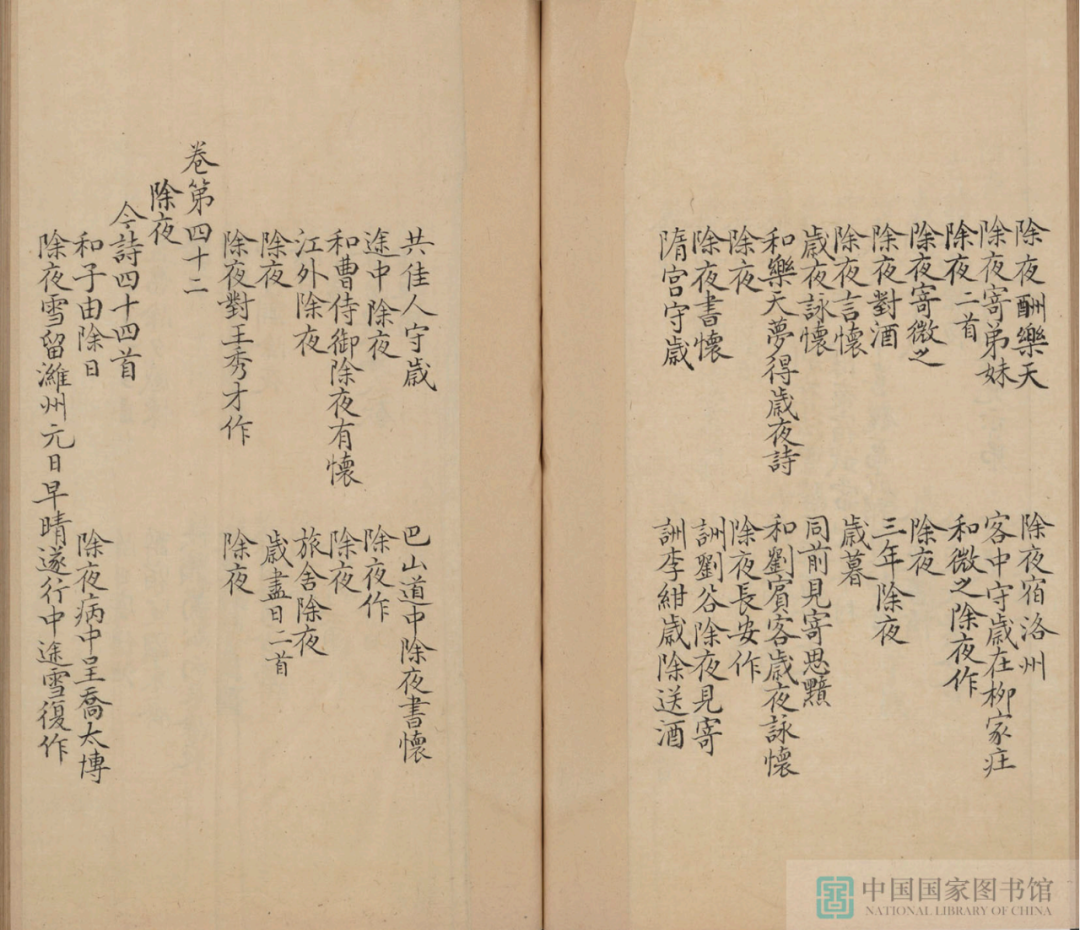 除夜酬樂天 除夜宿洛州
除夜寄弟妹 客中守歲在柳家庄
除夜二首 和微之除夜作
除夜寄微之 除夜
除夜對酒 三年除夜
除夜言懷 歲暮
歲夜詠懷 同前見寄思黯
和樂天夢得歲夜詩 和劉賓客歲夜詠懷
除夜 除夜長安作
除夜書懷 詶劉谷除夜見寄
隋宫守歲 詶李紺歲除送酒
共佳人守歲 巴山道中除夜書懷
途中除夜 除夜作
和曹侍御除夜有懷 除夜
江外除夜 旅舍除夜
除夜 歲盡日二首
除夜對王秀才作 除夜
卷第四十二
除夜
今詩四十四首
和子由除日 除夜病中呈喬太博
除夜雪留濰州元日早晴遂行中途雪復作
中国国家图书馆
NATIONAL LIBRARY OF CHINA